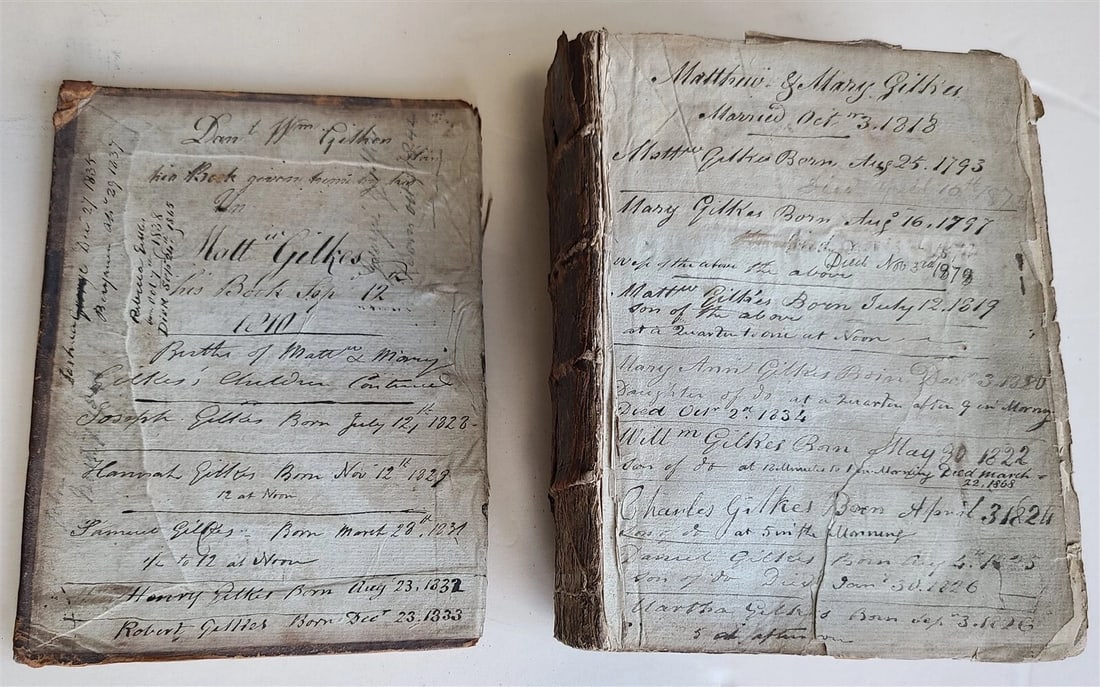 Danl Wm Gilkes
his Book given him by his
Un
Mattw Gilkes
his Book Sep 12th
1840
Births of Mattw & Mary
Gilkes's Children Continued
Joseph Gilkes Born July 12th 1828
Hannah Gilkes Born Nov 12th 1829
12 at Noon
Samuel Gilkes Born March 28th 1831
1/4 to 12 at Noon
Henry Gilkes Born Aug 23, 1832
Robert Gilkes Born Decr 23, 1833
Joshua Dec 27 1835
Benjamin 29 1837
Rebecca Gilkes
Octr 1838
Died Sept 1865
Matthw & Mary Gilkes
Married Octr 3, 1818
Mattw Gilkes Born Aug 25. 1793
Died April 10th
Mary Gilkes Born Augt 16, 1797
Died Nov 3rd 1879
wife of the above the above
Mattw Gilkes Born July 12, 1819
son of the above
at a Quarter to one at Noon
Mary Ann Gilkes Born Decr 3, 1820
Daughter of do at a Quarter after 9 in Morning
Died Octr 2d 1834
Willm Gilkes Born May 30 1822
son of do at 12 Minutes to 1 in Morning Died March
22, 1868
Charles Gilkes Born April 3 1824
Son of do at 5 in the Morning
Daniel Gilkes Born Aug 4th 1825
son of do Died Janr 30, 1826
Martha Gilkes Born Sep 3, 1826
5 at afternoon